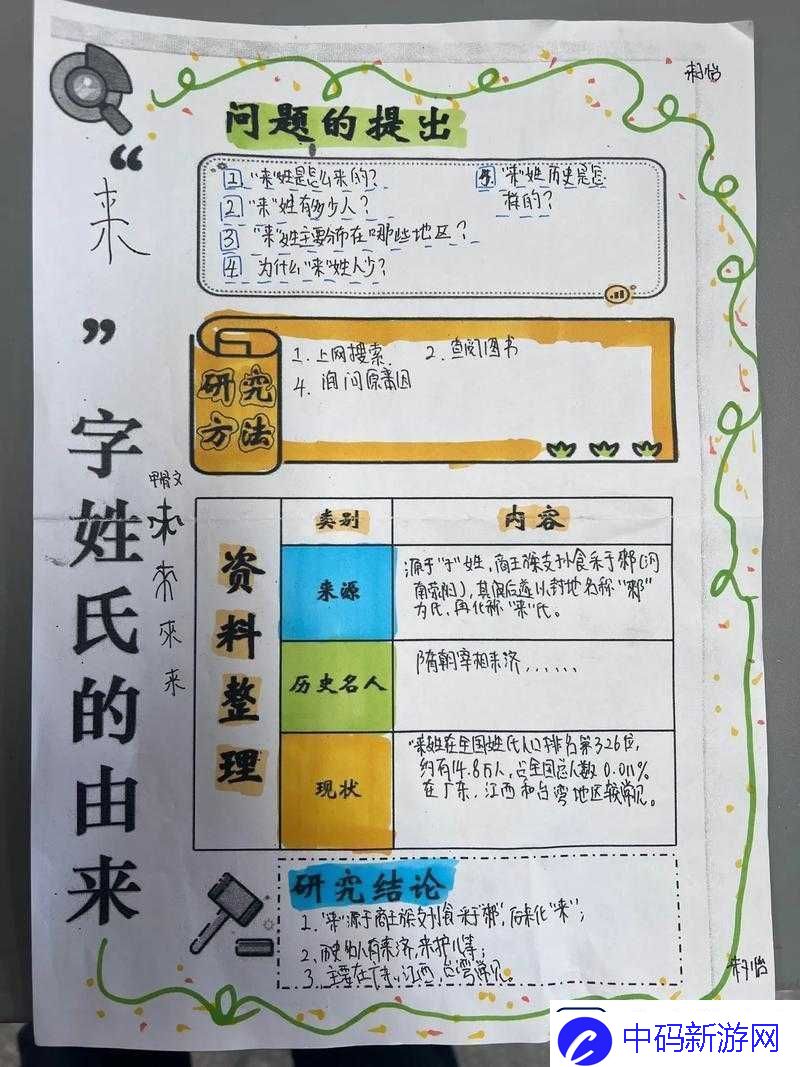 问题的提出
1 "来"姓是怎么来的?
2 "来"姓有多少人?
3 "来"姓主要分布在哪些地区?
4 为什么"来"姓人少?
5 "来"姓历史是怎样的?
"来"字姓氏的由来
研究方法
1. 上网搜索
2. 查阅图书
4. 询问
甲骨文
来
资料整理
类别
内容
来源
源于"子"姓,商王族支孙食采于郲(河
南荥阳),其后遂以封地名称"郲"
为氏,再化称"来"氏。
历史名人
隋朝宰相来济......
现状
"来姓在全国姓氏人口排名第326位,
约有14.8万人,占全国总人数0.011%
在广东、江西和台湾地区较常见。
研究结论
1. "来"源于商王族支孙食采于"郲",后来化"来";
2. 历史名人有来济,来护儿等;
3. 主要在广东,江西,台湾常见。
中码新游网